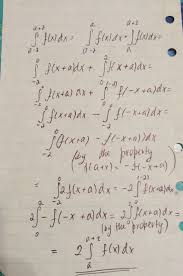 ∫_{a-2}^{a+2} f(x)dx = ∫_{a-2}^{a} f(x)dx + ∫_{a}^{a+2} f(x)dx =
∫_{-2}^{0} f(x+a)dx + ∫_{0}^{2} f(x+a)dx =
∫_{-2}^{0} f(x+a)dx + ∫_{0}^{-2} f(-x+a)dx =
∫_{-2}^{0} f(x+a)dx - ∫_{-2}^{0} f(-x+a)dx =
∫_{-2}^{0} (f(x+a) - f(-x+a))dx
(by the property
f(a+x) = -f(-x+a)
= ∫_{-2}^{0} 2f(x+a)dx = -2∫
2∫_{-2}^{0} - f(-x+a)dx = 2∫ f(x+a)dx
(by the property)
= 2∫_{a}^{a+2} f(x)dx